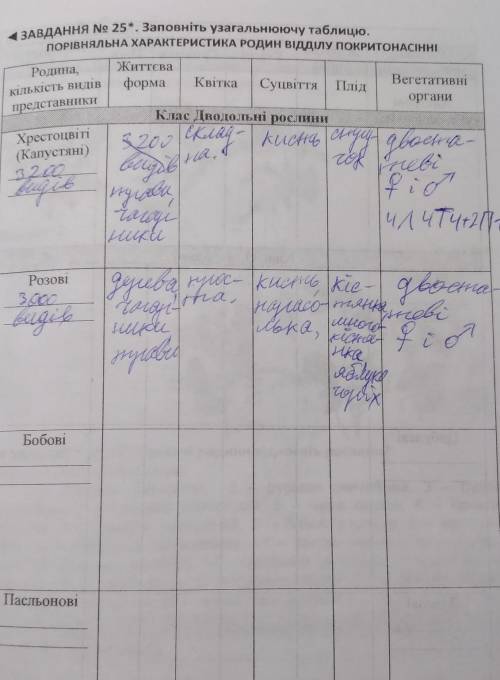 ◄ ЗАВДАННЯ № 25*. Заповніть узагальнюючу таблицю.
ПОРІВНЯЛЬНА ХАРАКТЕРИСТИКА РОДИН ВІДДІЛУ ПОКРИТОНАСІННІ
Родина,
кількість видів
представники
Життєва
форма
Квітка
Суцвіття
Плід
Вегетативні
органи
Клас Дводольні рослини
Хрестоцвіті
(Капустяні)
3200
видів
3200
видів
трави,
чагар
ники
склад-
на.
кисть
стру
чок
двоста-
теві
♀ і ♂
Розові
3000
видів
дерева,
чагар
ники
трави
прос-
та.
кисть,
парасо-
лька,
кіс-
тянка
много-
кістя-
нка
яблуко
горіх
двоста-
теві
♀ і ♂
Бобові
Пасльонові